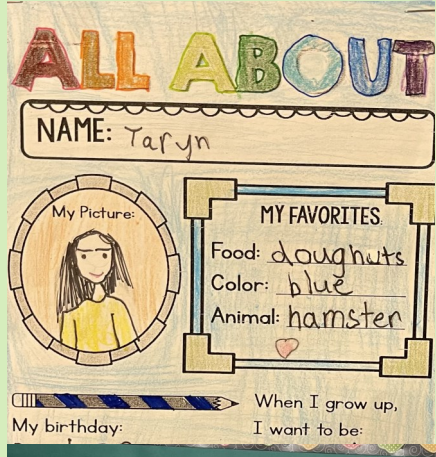 ALL ABOUT
NAME: Taryn
My Picture:
MY FAVORITES
Food: doughnuts
Color: blue
Animal: hamster
When I grow up,
My birthday:
I want to be: